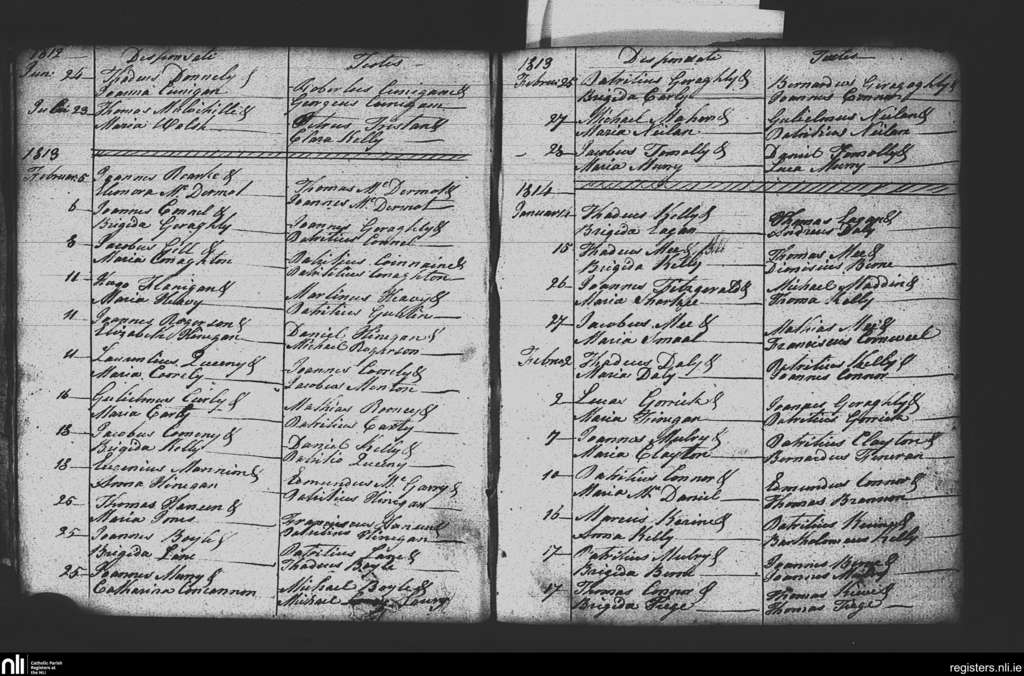 1812 Desponsati Testes
Jun: 24 Thadeus Donnely &
Joanna Cunigan
Robertus Cunigan &
Georgius Cunigam
Julii 23 Thomas &
Maria Walsh
Petrus &
Clara Kelly
1813
Februar. 5 Joannes &
Elenora Mc Dermot
Thomas Mc Dermot &
Joannes Mc Dermot
6 Joannes Connel &
Brigida Geraghly
Joannes Geraghly &
Patritius Connel
8 Jacobus Gill &
Maria Conaghton
Patritius &
Patritius Conaghton
11 Hugo Flanigan &
Maria Heavy
Martinus Heavy &
Patritius
11 Joannes Rogerson &
Elizabeth Hinegan
Daniel Hinegan &
Michael Rogerson
11 Laurentius Queeny &
Maria Conely
Joannes Conely &
Jacobus Menton
16 Gulielmus Curly &
Maria Carty
Mathias &
Patritius Carty
18 Jacobus &
Brigida Kelly
Daniel Kelly &
Patritio Queeny
18 Eugenius Mannion &
Anna Hinegan
Edmundus Mc Garry &
Patritius Hinegan
25 Thomas Hansen &
Maria Jones
Franciscus Hansen &
Patritius Hinegan
25 Joannes Boyle &
Brigida Lane
Patritius Lane &
Thadeus Boyle
25 Joannes Murry &
Catharina Concannon
Michael Boyle &
Michael
1813 Desponsati Testes
Februar. 25 Patritius Geraghly &
Brigida Carty
Bernardus Geragaghly &
Joannes Connor
27 Michael Mahon &
Maria Neilan
Gulielmus Neilan &
Patritius Neilan
28 Jacobus Tomolly &
Maria Murry
Daniel Tomolly &
Luca Murry
1814
Januar. Thadeus Kelly &
Brigida Lagan
Thomas Lagan &
Andreas Daly
15 Thadeus Mee &
Brigida Kelly
Thomas Mee &
Dionisius Birne
26 Joannes Fitzgerald &
Maria
Michael Maddin &
Thoma Kelly
27 Jacobus Mee &
Maria Smaal
Mathias Mee &
Franciscus Cornweel
Februar. 2 Thadeus Daly &
Maria Daly
Patritius Kelly &
Joannes Connor
2 Lucas Gorrick &
Maria Finegan
Joannes Geraghly &
Patritius Gorrick
7 Joannes Mulry &
Maria Clayton
Patritius Clayton &
Bernardus
10 Patritius Connor &
Maria Mc Daniel
Edmundus Connor &
Thomas Brannon
16 Marcus &
Anna Kelly
Patritius &
Bartholomaeus Kelly
17 Patritius Mulry &
Brigida Birne
Joannes Birne &
Joannes
17 Thomas Connor &
Brigida Fiege
Thomas &
Thomas Fiege
nli Catholic Parish
Registers at
the NLI
registers.nli.ie